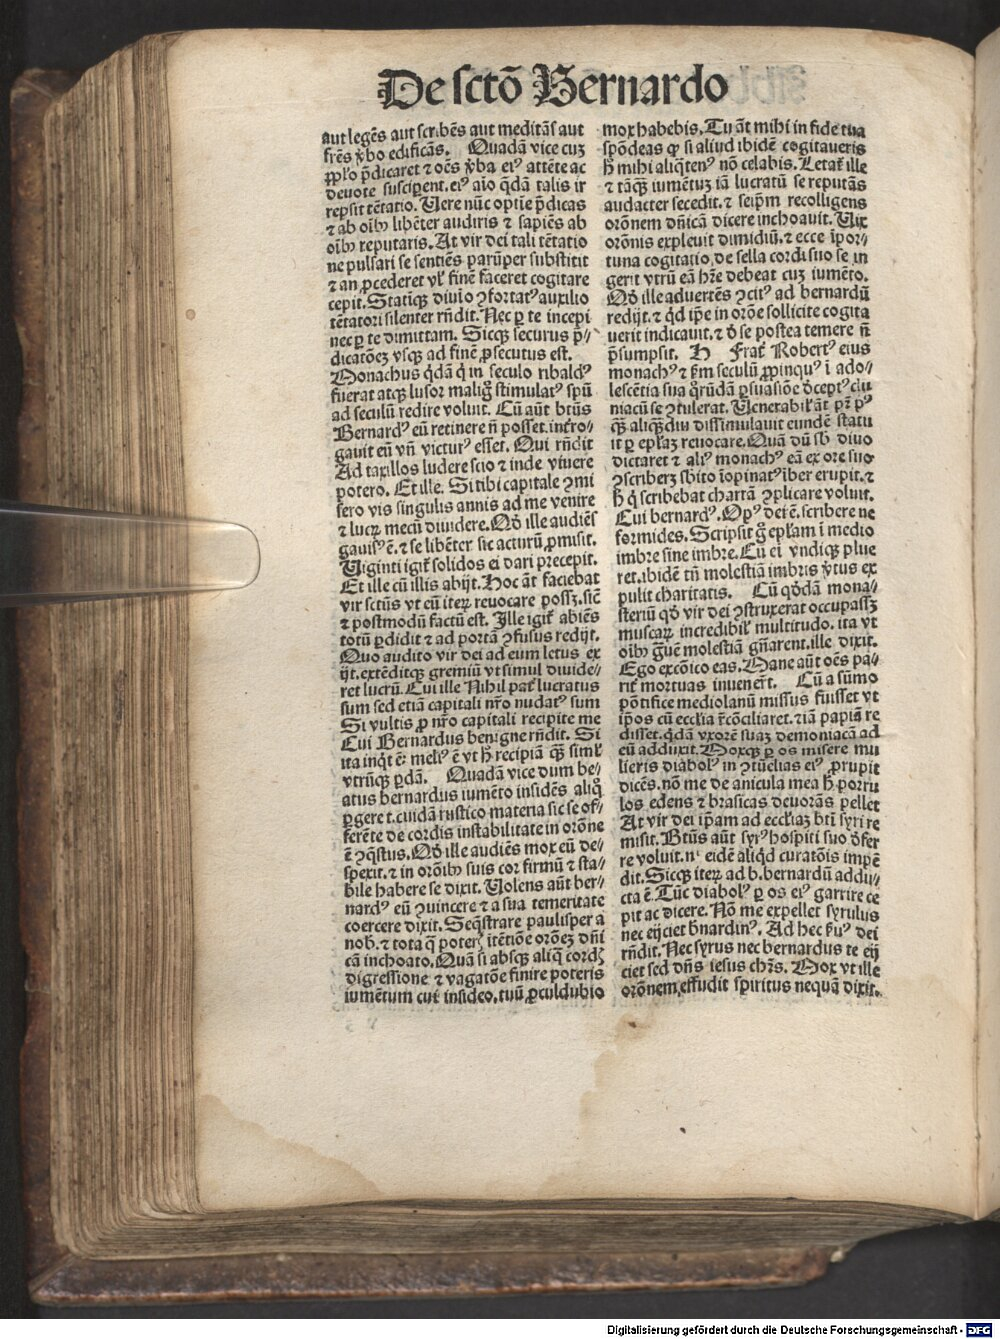 De sctō Bernardo
aut legēs aut scribēs aut meditās aut
frēs v̄bo edificās. Quadā vice cuȝ
ꝓpl̄o p̄dicaret ⁊ oēs v̄ba eiꝰ attēte ac
deuote susciꝑent. eiꝰ aīo q̄dā talis ir
repsit tētatio. Vere nūc optīe p̄dicas
⁊ ab oībꝰ libēter audiris ⁊ sapiēs ab
oībꝰ reputaris. At vir dei tali tētatio
ne pulsari se sentiēs parūper substitit
⁊ an ꝓcederet vl̓ finē faceret cogitare
cepit. Statimqꝫ diuīo ꝯfortatꝰ auxilio
tētatori silenter rn̄dit. Nec ꝑ te incepi
nec ꝑ te dimittam. Sicqꝫ securus p̄-
dicatōeȝ vsqꝫ ad finē ꝓsecutus est.
Monachus q̄dā q̄ in seculo ribaldꝰ
fuerat atqꝫ lusor maligͦ stimulatꝰ spū
ad seculū redire voluit. Cū aūt btūs
Bernardꝰ eū retinere n̄ posset. int̄ro-
gauit eū vn̄ victurꝰ esset. Qui rn̄dit
Ad taxillos ludere scio ⁊ inde viuere
potero. Et ille. Si tibi capitale ꝯmi
sero vis singulis annis ad me venire
⁊ lucꝝ mecū diuidere. Qḋ ille audiēs
gauisꝰ ē. ⁊ se libēter sic acturū ꝓmisit.
Viginti igit̉ solidos ei dari precepit.
Et ille cū illis abijt. Hoc āt faciebat
vir sctūs vt eū iteꝝ reuocare possȝ. sic̄
⁊ postmodū factū est. Ille igit̉ abiēs
totū ꝑdidit ⁊ ad portā ꝯfusus redijt.
Quo audito vir dei ad eum letus ex
ijt. extēditqꝫ gremiū vt simul diuide-
ret lucrū. Cui ille Nihil pat̄ lucratus
sum sed etiā capitali nr̄o nudatꝰ sum
Si vultis ꝓ nr̄o capitali recipite me
Cui Bernardus benigne rn̄dit. Si
ita inq̄t ē: meliꝰ ē vt h̄ recipiā qꝫ̄ siml̓
vtrūqꝫ ꝑdā. Quadā vice dum be-
atus bernardus iumēto insidēs aliqͦ
ꝑgeret. cuidā rustico materia sic se of-
ferēte de cordis instabilitate in orōne
ē ꝯq̄stus. Qḋ ille audiēs mox eū de-
spexit. ⁊ in orōibꝰ suis cor firmū ⁊ sta-
bile habere se dixit. Volens aūt ber-
nardꝰ eū ꝯuincere ⁊ a sua temeritate
coercere dixit. Seq̄strare paulisper a
nob̄. ⁊ tota q̄ poteris ītētiōe orōeȝ dn̄i
cā inchoato. Quā si absqꝫ aliq̄ cordis
digressione ⁊ vagatōe finire poteris
iumētum cui insideo. tuū ꝓculdubio
mox habebis. Tu āt mihi in fide tua
spōdeas qꝫ si aliud ibidē cogitaueris
h̄ mihi aliq̄tenꝰ nō celabis. Letat̉ ille
⁊ tāqꝫ iumētuȝ iā lucratū se reputās
audacter secedit. ⁊ seip̄m recolligens
orōnem dn̄icā dicere inchoauit. Vix
orōnis expleuit dimidiū. ⁊ ecce īpor-
tuna cogitatio. de sella cordi suo se in
gerit vtrū eā hr̄e debeat cuȝ iumēto.
Qḋ ille aduertēs ꝯcitꝰ ad bernardū
redijt. ⁊ qḋ ip̄e in orōe sollicite cogita
uerit indicauit. ⁊ ḋ se postea temere n̄
p̄sumpsit. H Frat̄ Robertꝰ eius
monachꝰ ⁊ ẜm seculū ꝓpinquꝰ ī ado-
lescētia sua qͦrūdā ꝑsuasiōe ḋceptꝰ clu
niacū se ꝯtulerat. Venerabil̓ āt pr̄ pꝰ
qꝫ̄ aliqꝫdiu dissimulauit eundē statu
it ꝑ ep̄l̄aȝ reuocare. Quā dū sb̄ diuo
dictaret ⁊ aliꝰ monachꝰ eā ex ore suo
ꝯscriberȝ sb̄ito īopinatꝰ īber erupit. ⁊
h̄ q̄ scribebat chartā ꝯplicare voluit.
Cui bernardꝰ. Opꝰ dei ē. scribere ne
formides. Scripsit gͦ ep̄l̄am ī medio
imbre sine imbre. Cū ei vndiqꝫ plue
ret. ibidē tn̄ molestiā imbris v̄tus ex
pulit charitatis. Cū qḋdā mona-
steriū qḋ vir dei ꝯstruxerat occupassȝ
muscaꝝ incredibil̓ multitudo. ita vt
oībꝰ gͣuē molestiā gn̄arent. ille dixit.
Ego excōico eas. Mane aūt oēs pa-
rit̓ mortuas inuener̄t. Cū a sūmo
pōtifice mediolanū missus fuisset vt
ip̄os cū eccl̄ia r̄cōciliaret. ⁊iā papiā re
disset. q̄dā vxorē suaȝ demoniacā ad
eū adduxit. Moxqꝫ ꝑ os misere mu
lieris diabolꝰ in ꝯtumelias eiꝰ ꝓrupit
dicēs. nō me de anicula mea h̄ porru
los edens ⁊ brasicas deuorās pellet
At vir dei ip̄am ad eccl̄iaȝ bt̄i syri re
misit. Btūs aūt syrꝰ hospiti suo ḋfer
re voluit. nᶜ eidē aliqḋ curatōis impē
dit. Sicqꝫ iteꝝ ad b. bernardū addu-
cta ē. Tūc diabolꝰ ꝑ os eiꝰ garrire ce
pit ac dicere. Nō me expellet syrulus
nec eijciet bn̄ardinꝰ. Ad hec ẜuꝰ dei
rn̄dit. Nec syrus nec bernardus te eij
ciet sed dn̄s iesus chr̄s. Mox vt ille
orōnem effudit spiritus nequā dixit.
Digitalisierung gefördert durch die Deutsche Forschungsgemeinschaft - DFG